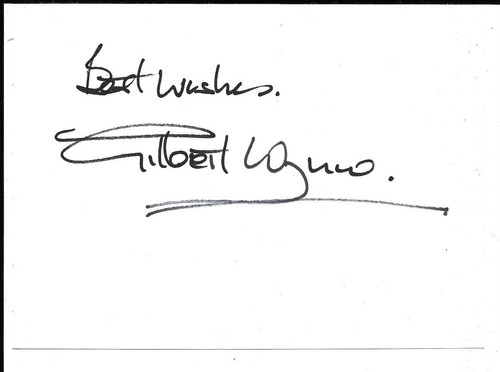 Best wishes.
Gilbert Wynne.